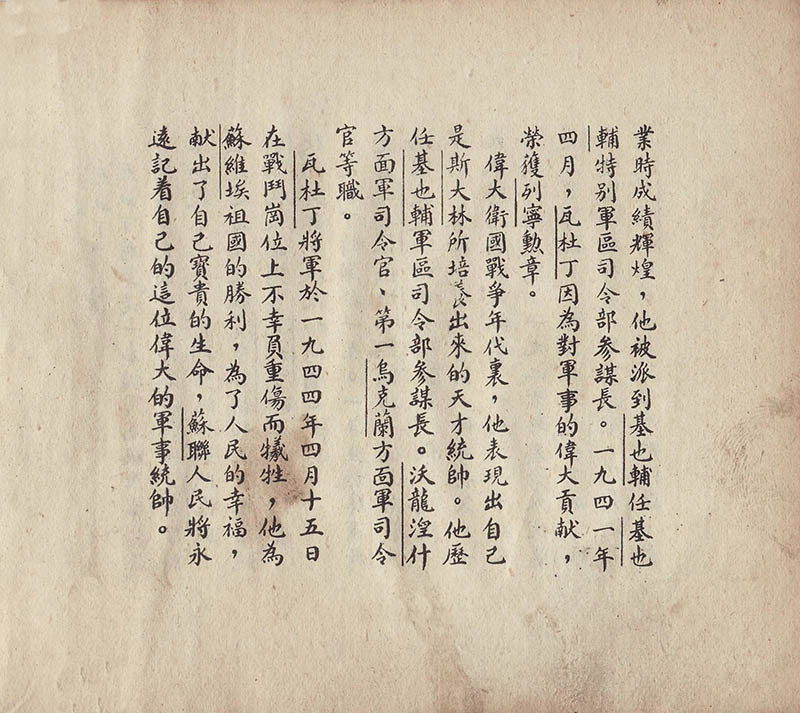 業時成績輝煌，他被派到基也輔任基也
輔特別軍區司令部參謀長。一九四一年
四月，瓦杜丁因為對軍事的偉大貢献，
榮獲列寧勳章。
偉大衛國戰爭年代裏，他表現出自己
是斯大林所培養出來的天才統帥。他歷
任基也輔軍區司令部參謀長。沃龍湼什
方面軍司令官、第一烏克蘭方面軍司令
官等職。
瓦杜丁將軍於一九四四年四月十五日
在戰鬥崗位上不幸負重傷而犧牲，他為
蘇維埃祖國的勝利，為了人民的幸福，
献出了自己寶貴的生命，蘇聯人民將永
遠記着自己的這位偉大的軍事統帥。